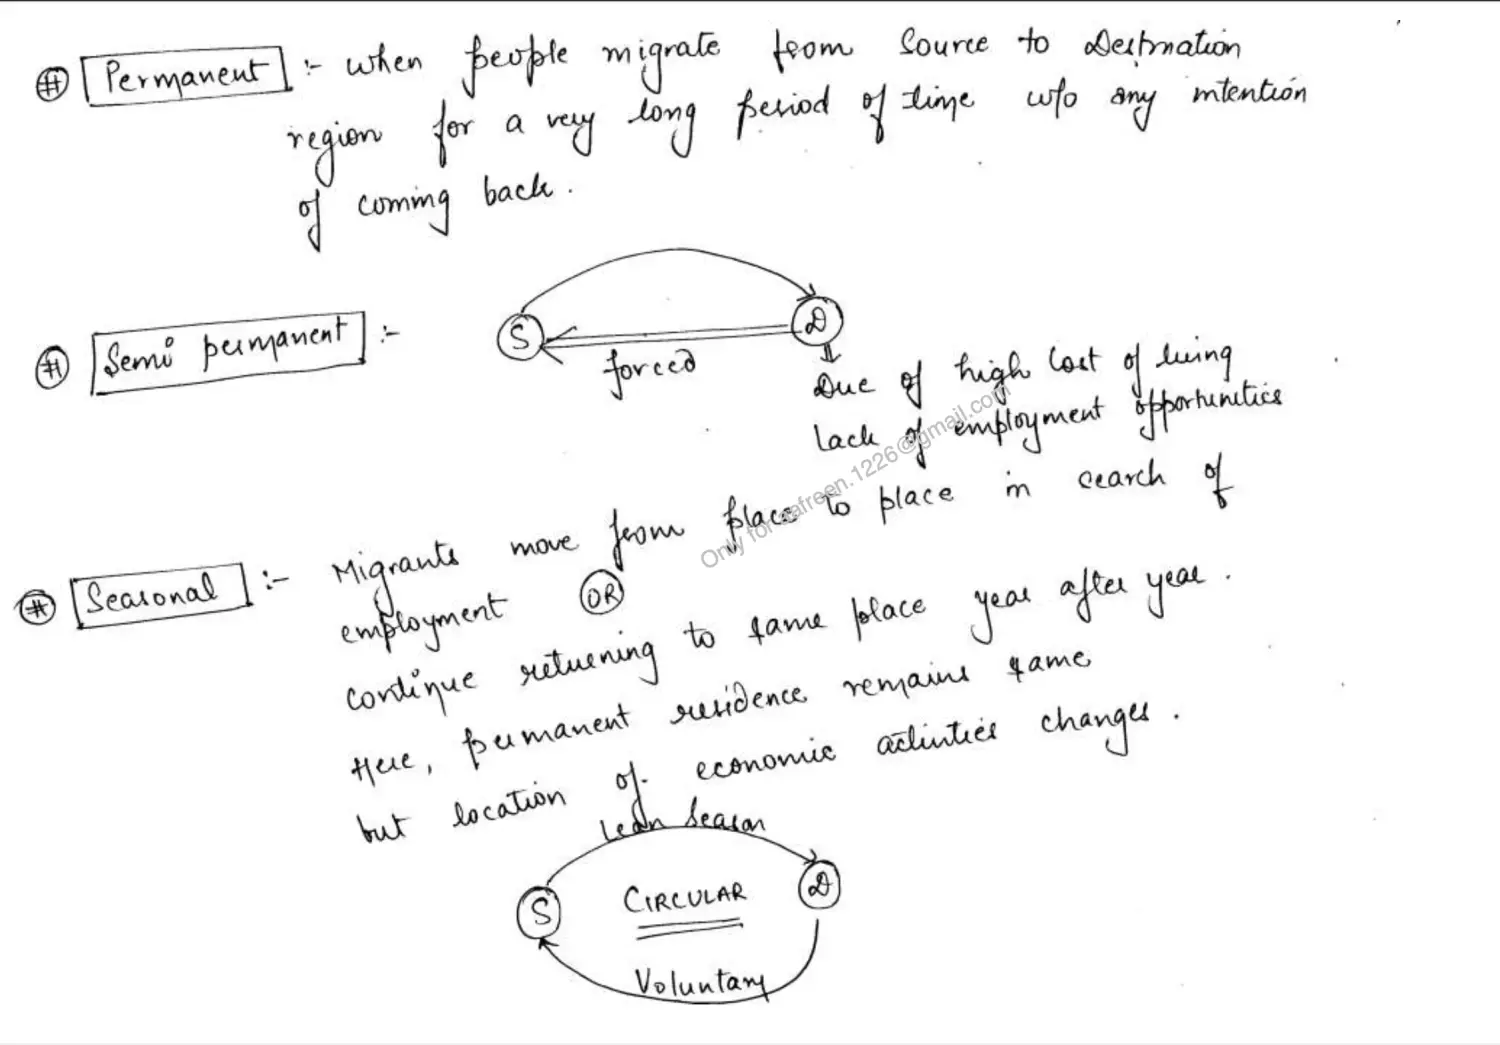 # Permanent :- when people migrate from Source to Destination
region for a very long period of time w/o any intention
of coming back.
# Semi permanent :-
S
D
forced
Due of high cost of living
lack of employment opportunities
Only for aafreen.1226@gmail.com
# Seasonal :- Migrants move from place to place in search of
employment OR
continue returning to same place year after year.
Here, permanent residence remains same
but location of economic activities changes.
Lean Season
S
CIRCULAR
D
Voluntary